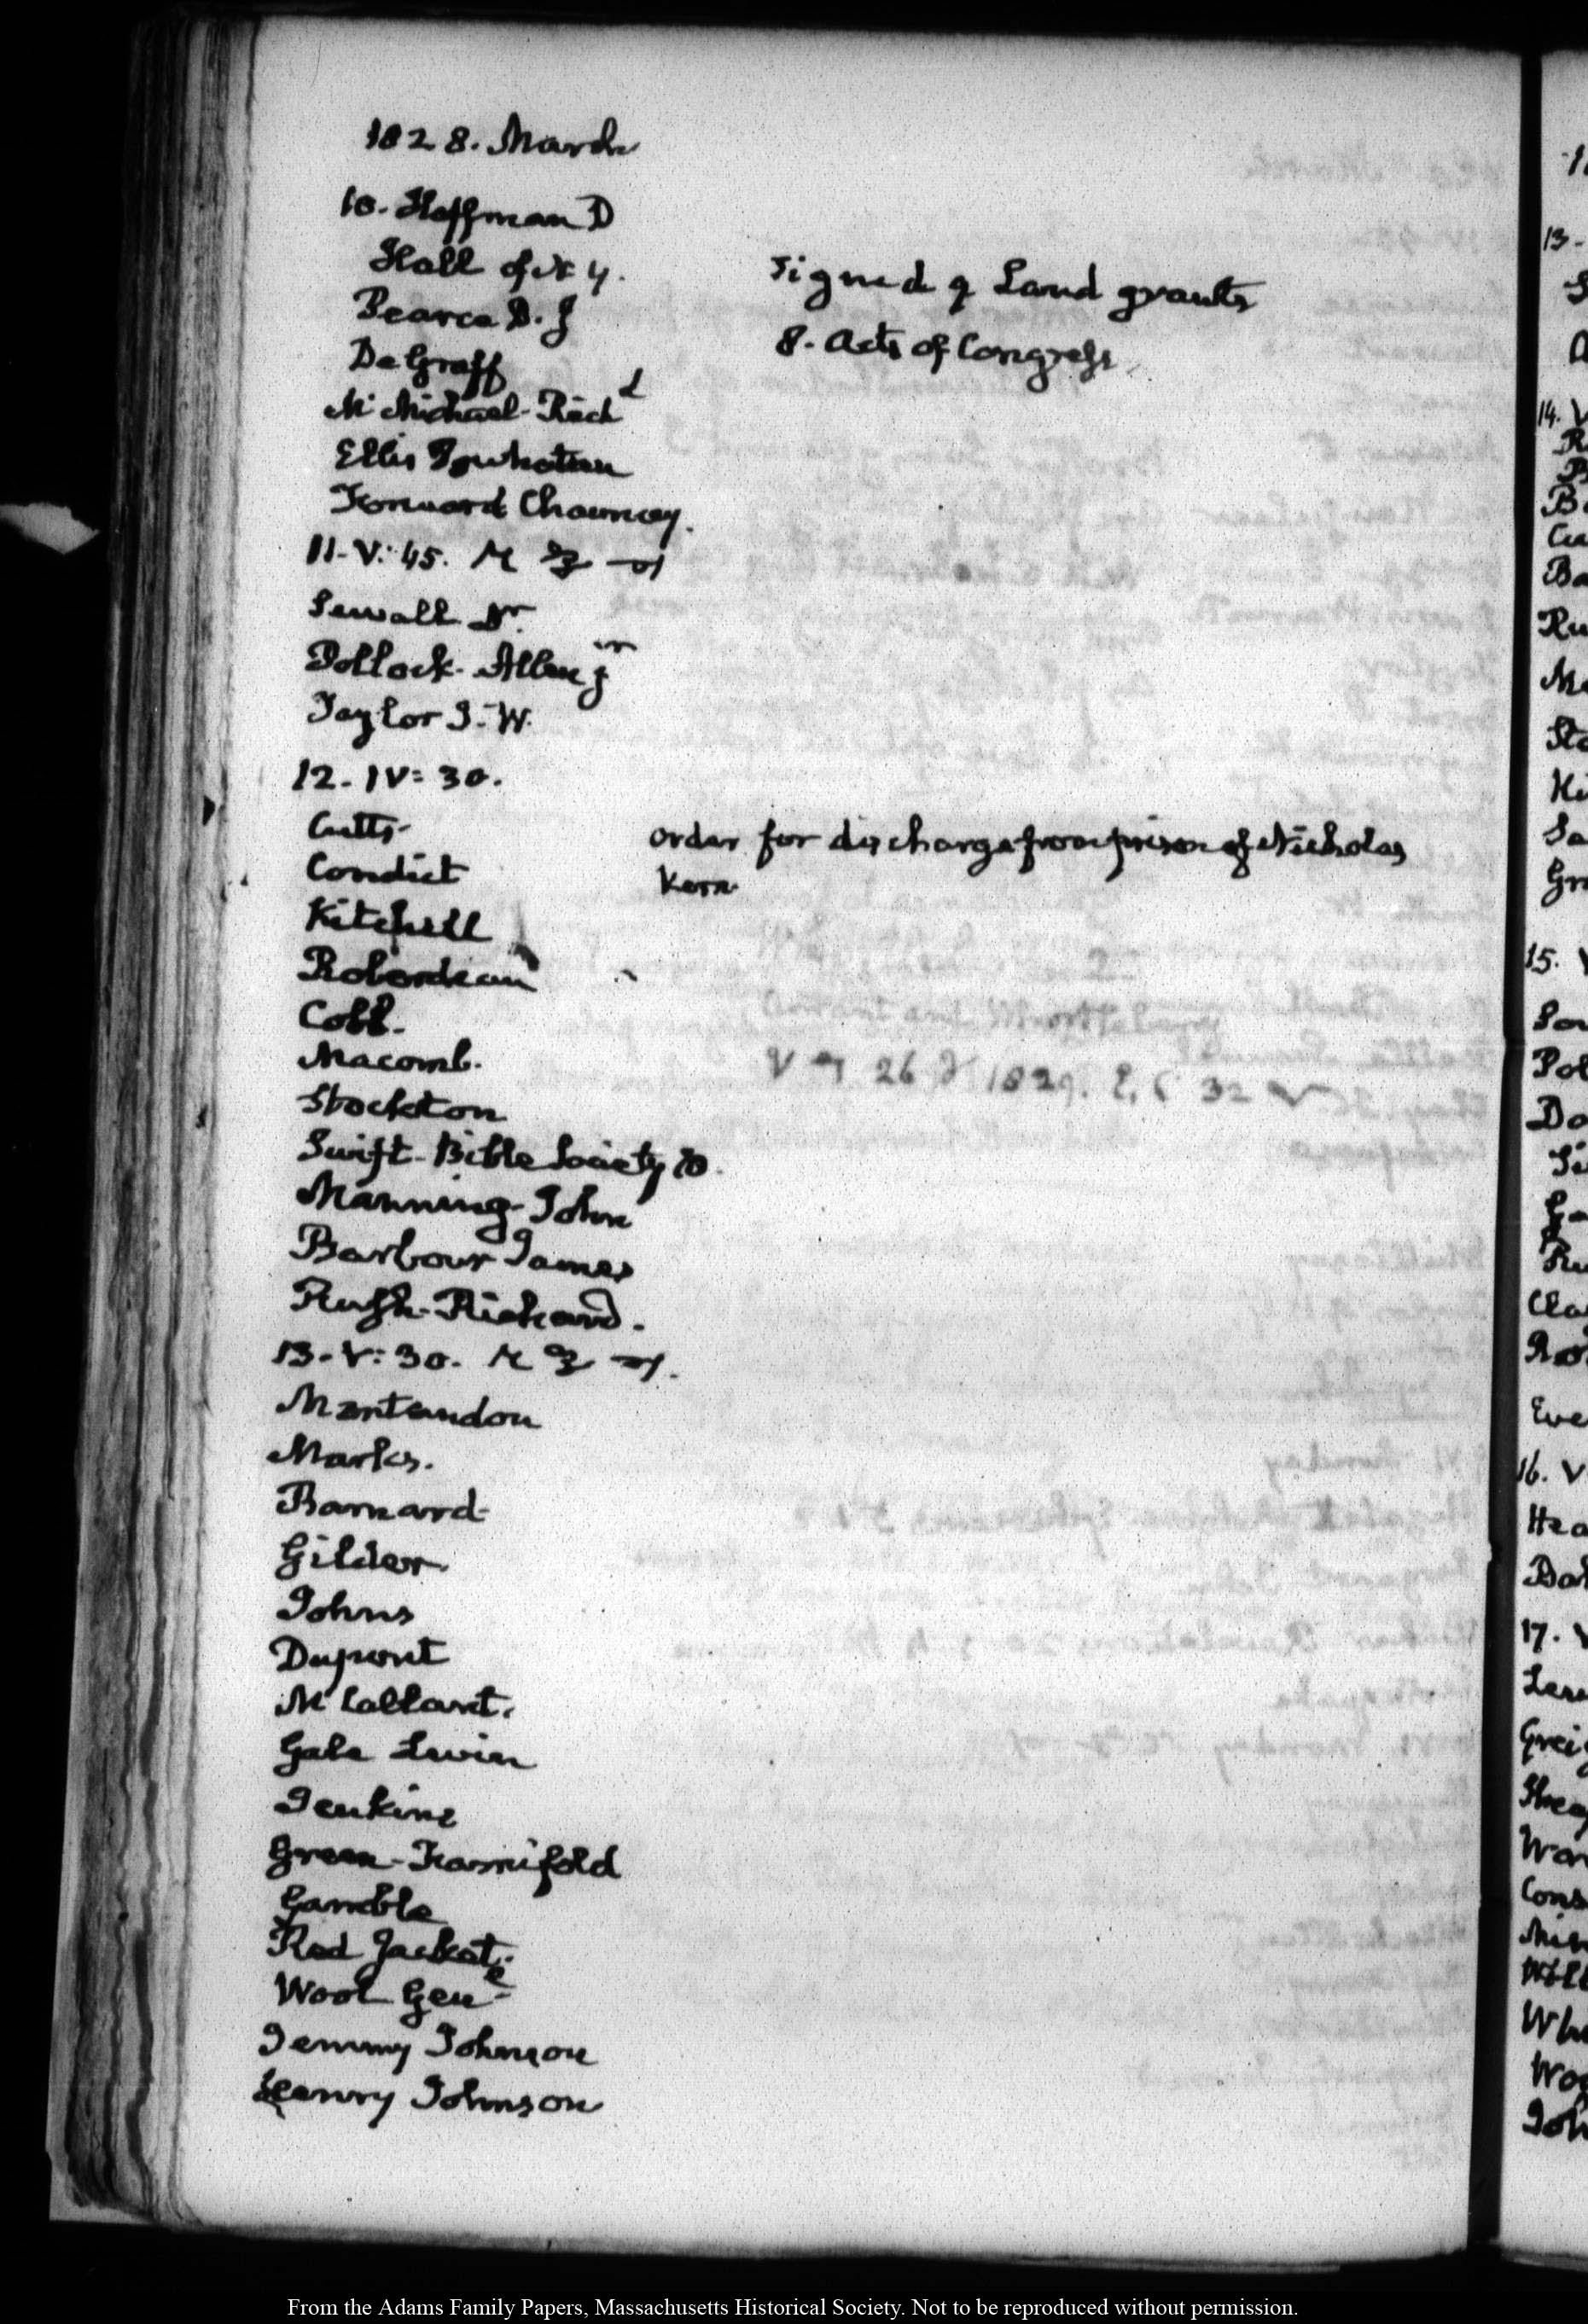 1828. March
10. Hoffman D
Hall of N Y.
Signed 9 Land grants
Pearce D. J
8. Acts of Congress
De Graff
Mc Michael - Richd
Ellis Powhatan
Forward Chauncey.
11. V: 45.
Sewall Dr.
Pollock - Allen jr
Taylor J. W.
12. IV: 30.
Cutts.
Order for discharge from prison of Nicholas
Condict
Kern.
Kitchell
Roberdeau
Cobb.
Macomb.
Stockton
Swift - Bible Society 20.
Manning - John
Barbour James
Rush - Richard.
13. V: 30.
Montandon
Marks.
Barnard
Gilder.
Johns
Dupont
Gale Levin
Jenkins
Green - Farnifold
Gamble
Red Jacket.
Wool Gen
Jemmy Johnson
Henry Johnson
From the Adams Family Papers, Massachusetts Historical Society. Not to be reproduced without permission.